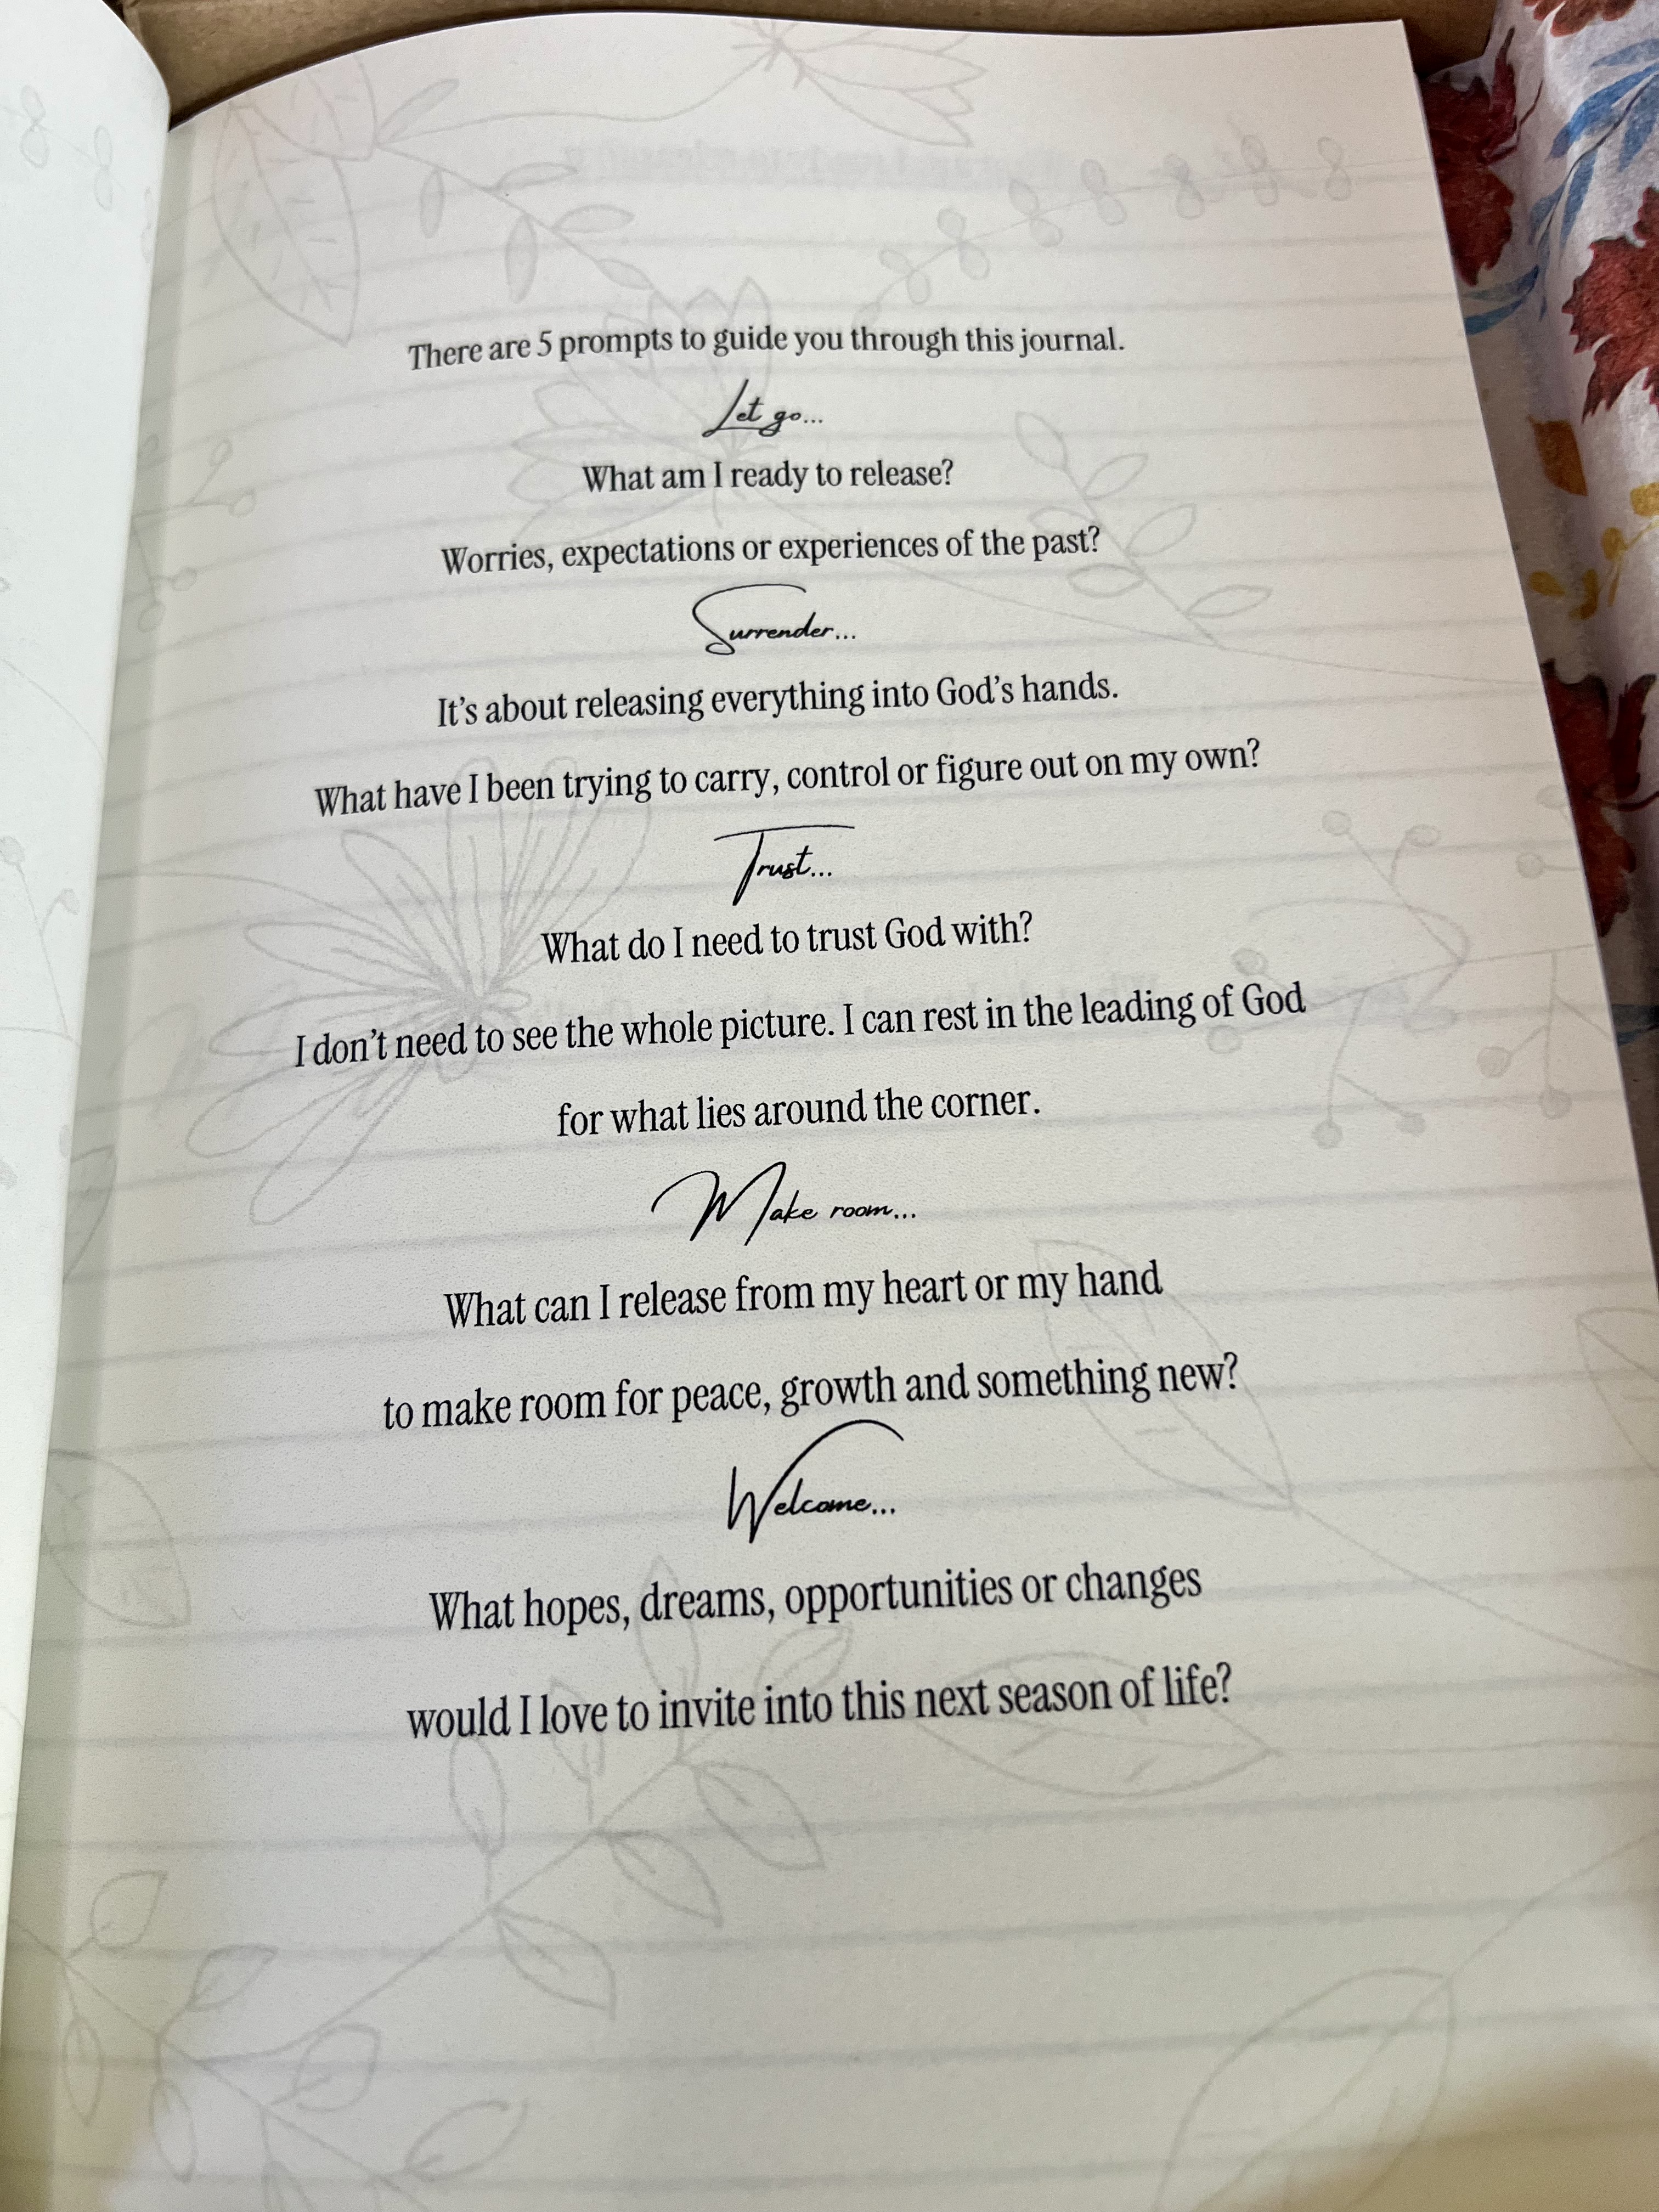 There are 5 prompts to guide you through this journal.
Let go...
What am I ready to release?
Worries, expectations or experiences of the past?
Surrender...
It's about releasing everything into God's hands.
What have I been trying to carry, control or figure out on my own?
Trust...
What do I need to trust God with?
I don't need to see the whole picture. I can rest in the leading of God
for what lies around the corner.
Make room...
What can I release from my heart or my hand
to make room for peace, growth and something new?
Welcome...
What hopes, dreams, opportunities or changes
would I love to invite into this next season of life?